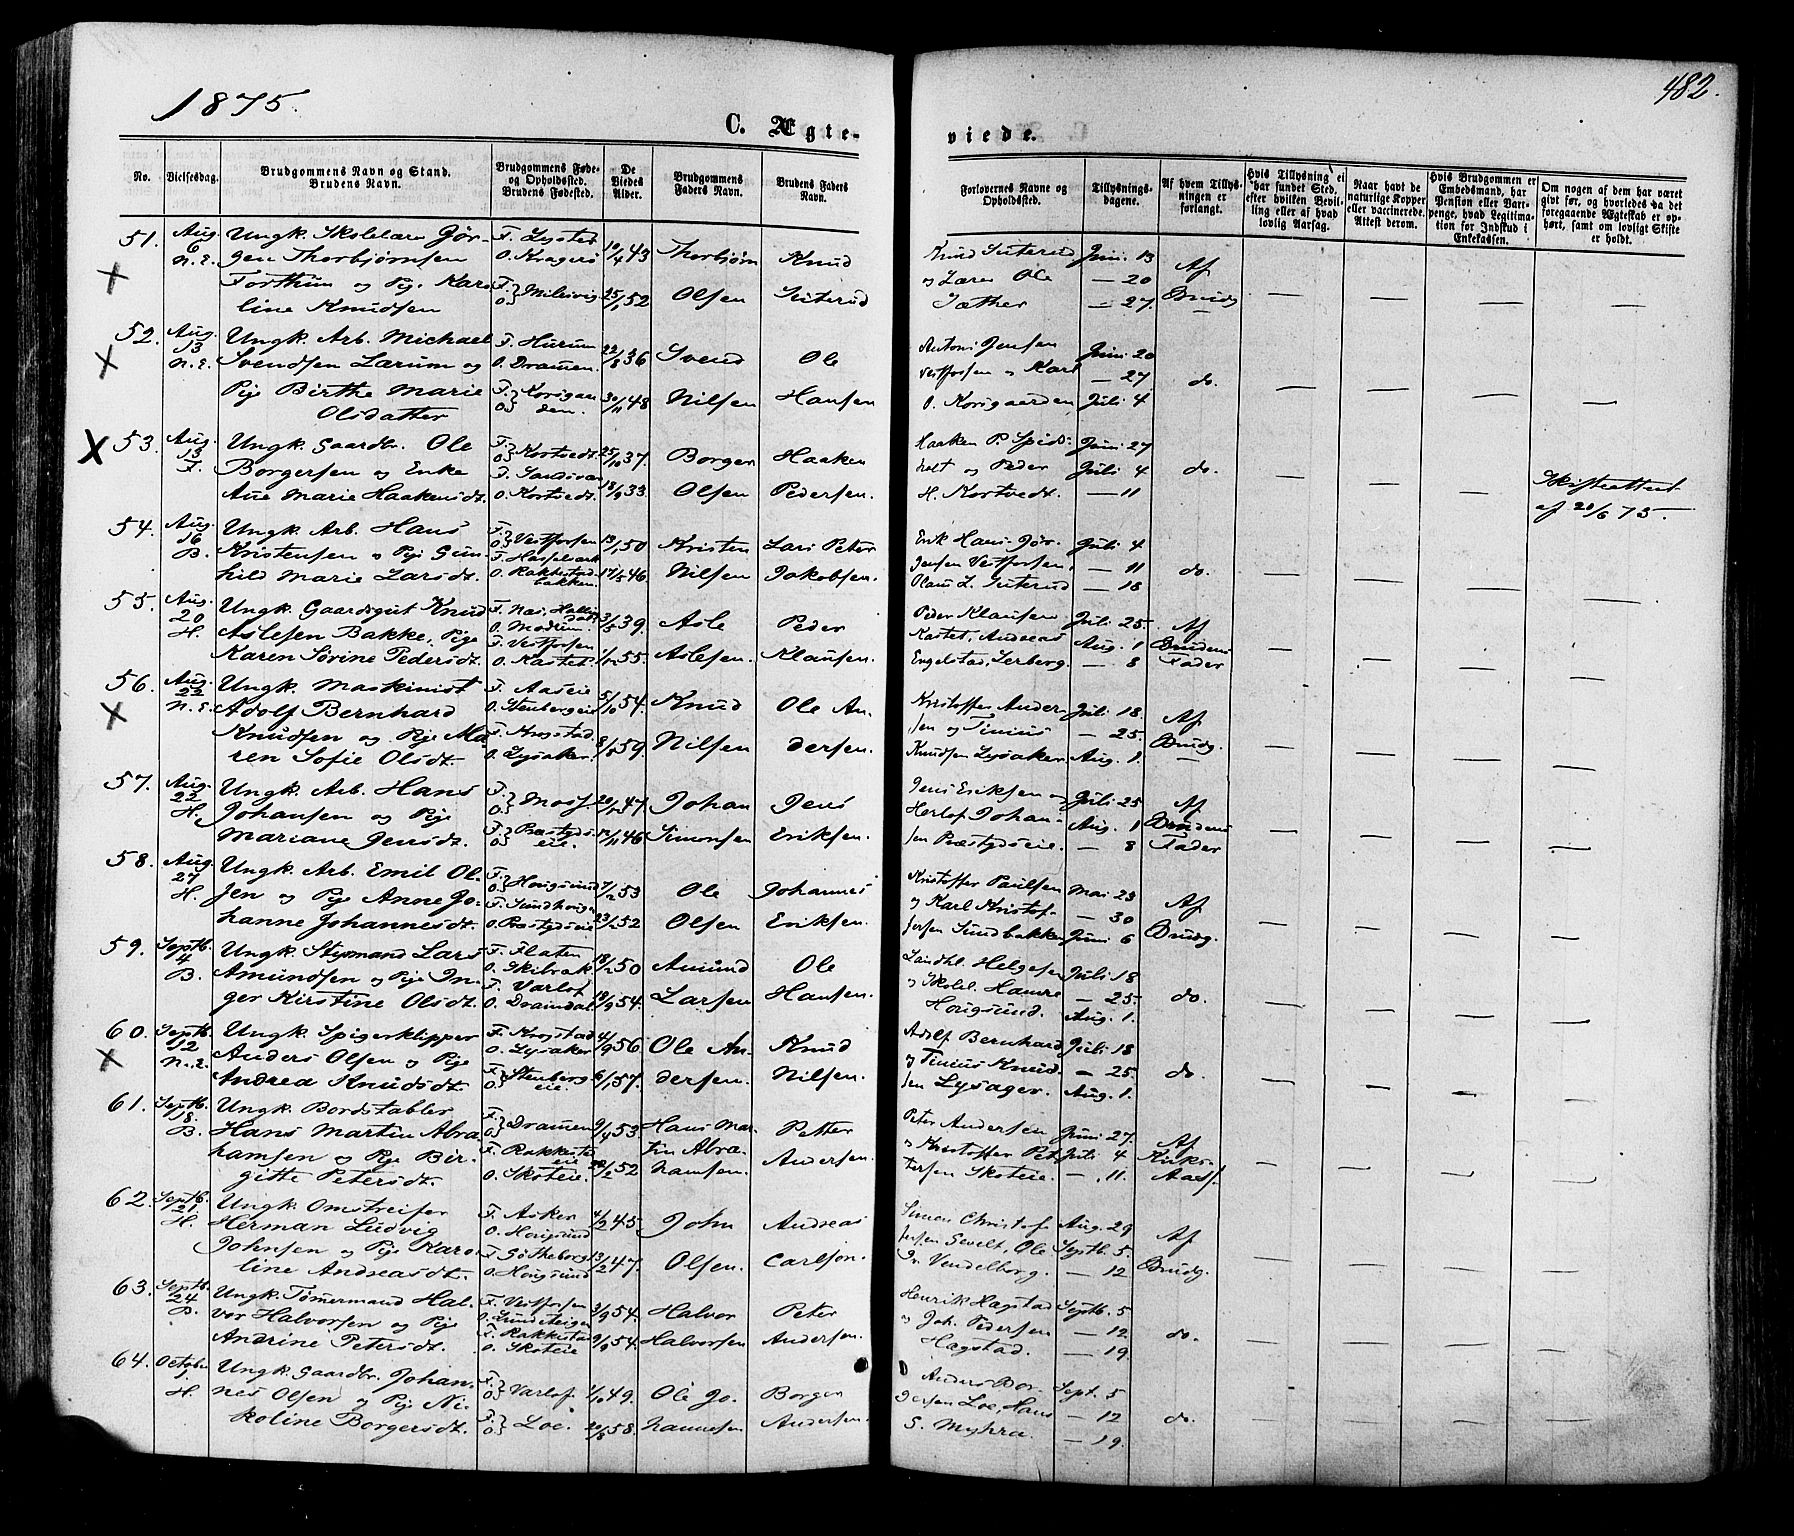 1875.
482.
C. Ægte-
viede.
No.
Vielsesdag.
Brudgommens Navn og Stand.
Brudens Navn.
Brudgommens Føde-
og Opholdssted.
Brudens Fødested.
De
Viedes
Alder.
Brudgommens
Faders Navn.
Brudens Faders
Navn.
Forlovernes Navne og
Opholdssted.
Tillysnings-
dagene.
Af hvem Tillys-
ningen er
forlangt.
Hvis Tillysning ei
har fundet Sted,
efter hvilken Bevil-
ling eller af hvad
lovlig Aarsag.
Naar havt de
naturlige Kopper
eller vaccinerede.
Attest derom.
Hvis Brudgommen er
Embedsmand, har
Pension eller Vart-
penge, hvad Legitima-
tion for Indskud i
Enkekassen.
Om nogen af dem har været
gift før, og hvorledes da det
foregaaende Ægteskab er op-
hørt, samt om lovligt Skifte
er holdt.
51. Aug. 6 N.E.
Ungk. Skolelær Jør-
gen Thorbjørnsen
Forthun og Pige Karo
line Knudsen
O. Kragerø
10/4 43
Thorbjørn Olsen
Knud
Juni 13
og Lærer Ole
— 20
Sæther
— 27
Af Brudg.
52. Aug. 13 N.E.
Ungk. Arb. Michael
Svendsen Lærum og
Pige Birthe Marie
Olsdatter
F. Hurum
O. Dramen
22/8 36
30/11 48
Svend Nilsen
Ole Hansen
Antoni Jensen
Vestfossen og Karl
O. Korsgaarden
Juni 20
— 27
Juli 4
do.
53. Aug. 13 F.
Ungk. Gaardbr. Ole
Borgersen og Enke
Ane Marie Haakensdt.
F. O. Kortvedt
F. Sandsvær
O. Kortvedt
25/10 37.
18/9 33.
Borger Olsen
Haaken Pedersen.
Haaken P. Spids-
holt og Peder
H. Kortvedt
Juni 27
Juli 4
— 11
do.
Skifteattest
af 20/6 75.
54. Aug. 16 B.
Ungk. Arb. Hans
Kristensen og Pige Gun-
hild Marie Larsdt.
F. O. Vestfossen
O. Rakkestad-
bakken
13/1 50
17/5 46
Kristen Nilsen
Lars Peter
Jakobsen.
Erik Hans Jør-
Jensen Vestfossen,
Juli 4
— 11
— 18
do.
55. Aug. 20 H.
Ungk. Gaardsgut Knud
Aslesen Bakke, Pige
Karen Sørine Pedersdt.
F. Næs, Halling
dal
O. Modum
F. Vestfossen
O. Kastet
3/5 39.
Asle Aslesen.
Peder Klausen.
Peder Klausen
Kastet, Andreas
Engelstad, Lerberg.
Juli 25.
Aug. 1
— 8
Af Brudens Fader
56. Aug. 22 N.E.
Ungk. Maskinist
Adolf Bernhard
Knudsen og Pige Ma-
ren Sofie Olsdt.
F. Aaseie
O. Stenbergeie
F. Krogstad.
O. Lysaker.
5/10 54.
Knud Nilsen
Ole An-
dersen.
Kristoffer Ander
sen og Tinius
Knudsen Lysaker
Juli 18.
— 25.
Aug. 1.
Af Brudg.
57. Aug. 22 H.
Ungk. Arb. Hans
Johansen og Pige
Mariane Jensdt.
F. O. Moss.
F. O. Præstgds-
eie.
Johan Simonsen
Jens Eriksen.
Jens Eriksen og
Herlof Johan-
sen Præstgdseie.
Juli 25
Aug. 1
— 8
Af Brudens Fader
58. Aug. 27 H.
Ungk. Arb. Emil Ol-
sen og Pige Anne Jo-
hanne Johannesdt.
F. O. Hougsund
O. Præstgdseie
Ole Olsen
Johannes Eriksen.
Kristoffer Paulsen
og Karl Kristof-
fersen Sundbakken
Mai 23
— 30
Juni 6
Af Brudg.
59. Septb. 4 B.
Ungk. Styrmand Lars
Amundsen og Pige In-
ger Kirstine Olsdt.
F. Flaten
O. Skibrak
F. Varlof
O. Dramdal
18/2 50
18/9 54.
Amund Larsen
Ole Hansen.
Landhl. Helgesen
og Skolel. Hamre
Hougsund.
Juli 18
— 25.
Aug. 1.
do.
60. Septb. 12 N.E.
Ungk. Spigerklipper
Anders Olsen og Pige
Andrea Knudsdt.
F. Krogstad
O. Lysaker
F. O. Stenberg
eie.
4/9 56
6/1 57.
Ole An-
dersen.
Knud Nilsen.
Adolf Bernhard
og Tinius Knud-
sen Lysager.
Juli 18
— 25.
Aug. 1.
do.
61. Septb. 18. B.
Ungk. Bordstabler
Hans Martin Abra-
hamsen og Pige Bir-
gitte Petersdt.
F. O. Dramen
F. Rakkestad
eie
O. Skoteie.
9/4 53.
Hans Mar-
tin Abra-
hamsen.
Petter Andersen.
Peter Andersen
og Kristoffer Pet-
tersen Skoteie.
Juni 27.
Juli 4
— 11.
Af Kirks-
62. Septb. 21. H.
Ungk. Omstreifer
Herman Ludvig
Johnsen og Pige Karo
line Andreasdt.
F. Asker
O. Hougsund
F. Gøtheborg
O. Hougsund
4/2 45.
13/2 47.
John Olsen.
Andreas Carlson.
Simon Christof-
fersen Sevelt, Ole
Vendelborg.
Aug. 29
Septb. 5.
— 12
Af Brudg.
63. Septb. 24 B.
Ungk. Tømmermand Hal-
vor Halvorsen og Pige
Andrine Petersdt.
F. Vestfossen
F. Rakkestad
O. Skoteie
3/9 54.
9/9 54.
Halvor Halvorsen
Peter Andersen.
Henrik Hagstad
og Joh. Pedersen
Hagstad.
Septb. 5
— 12.
— 19.
do.
64. Octob. 1. H.
Ungk. Gaardbr. Johan-
nes Olsen og Pige Ni-
koline Borgersdt.
F. O. Varlof.
F. O. Loe.
20/8 58.
Ole Jo-
hannesen
Borger Andersen.
Anders Bor-
gersen Loe, Hans
S. Myhra.
Sept. 5
— 12
— 19.
do.